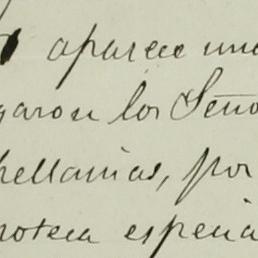 aparece una
garon los Seño
pellanias, por
poteca especia